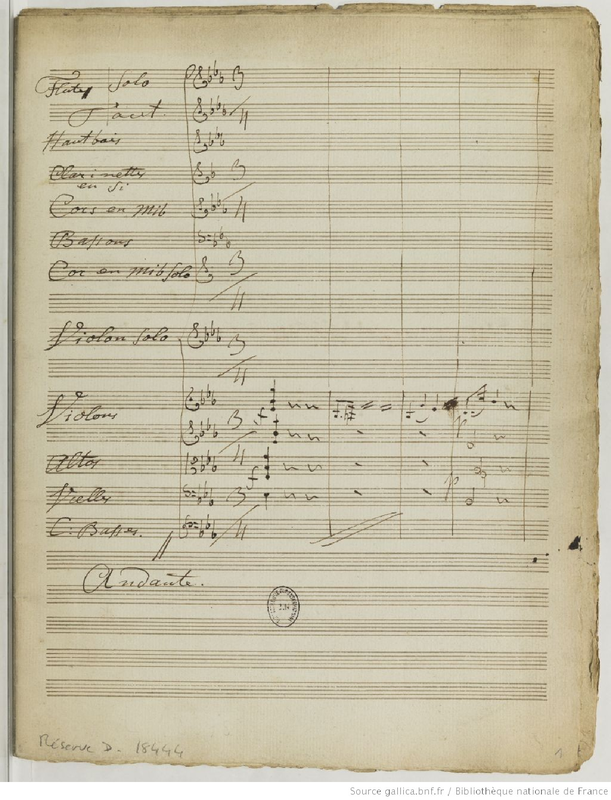 Flûtes Solo
Taut.
Hautbois
Clarinettes
en Si
Cors en Mib
Bassons
Cor en Mib Solo
Violon Solo
Violons
Altos
Vcelles
C. Basses.
Andante.
Réserve D. 18444
1
Source gallica.bnf.fr / Bibliothèque nationale de France